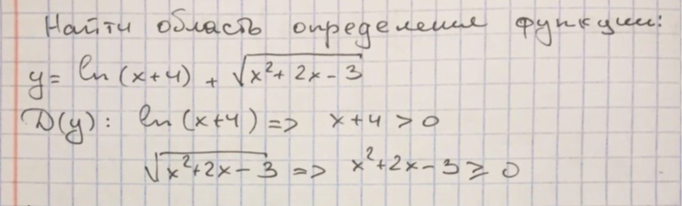 Найти область определения функции:
y = ln(x+4) + √(x²+2x-3)
D(y): ln(x+4) => x+4 > 0
√(x²+2x-3) => x²+2x-3 ≥ 0